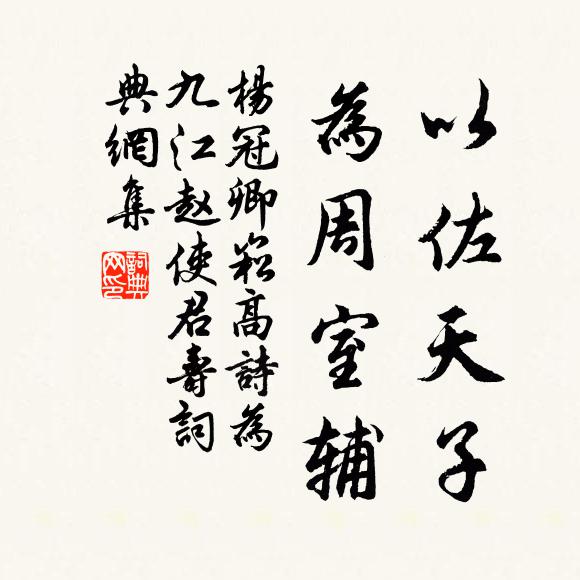 以佐天子
為周室輔
楊冠卿崧高詩為
九江赵使君壽詞
典網集
詞典網印